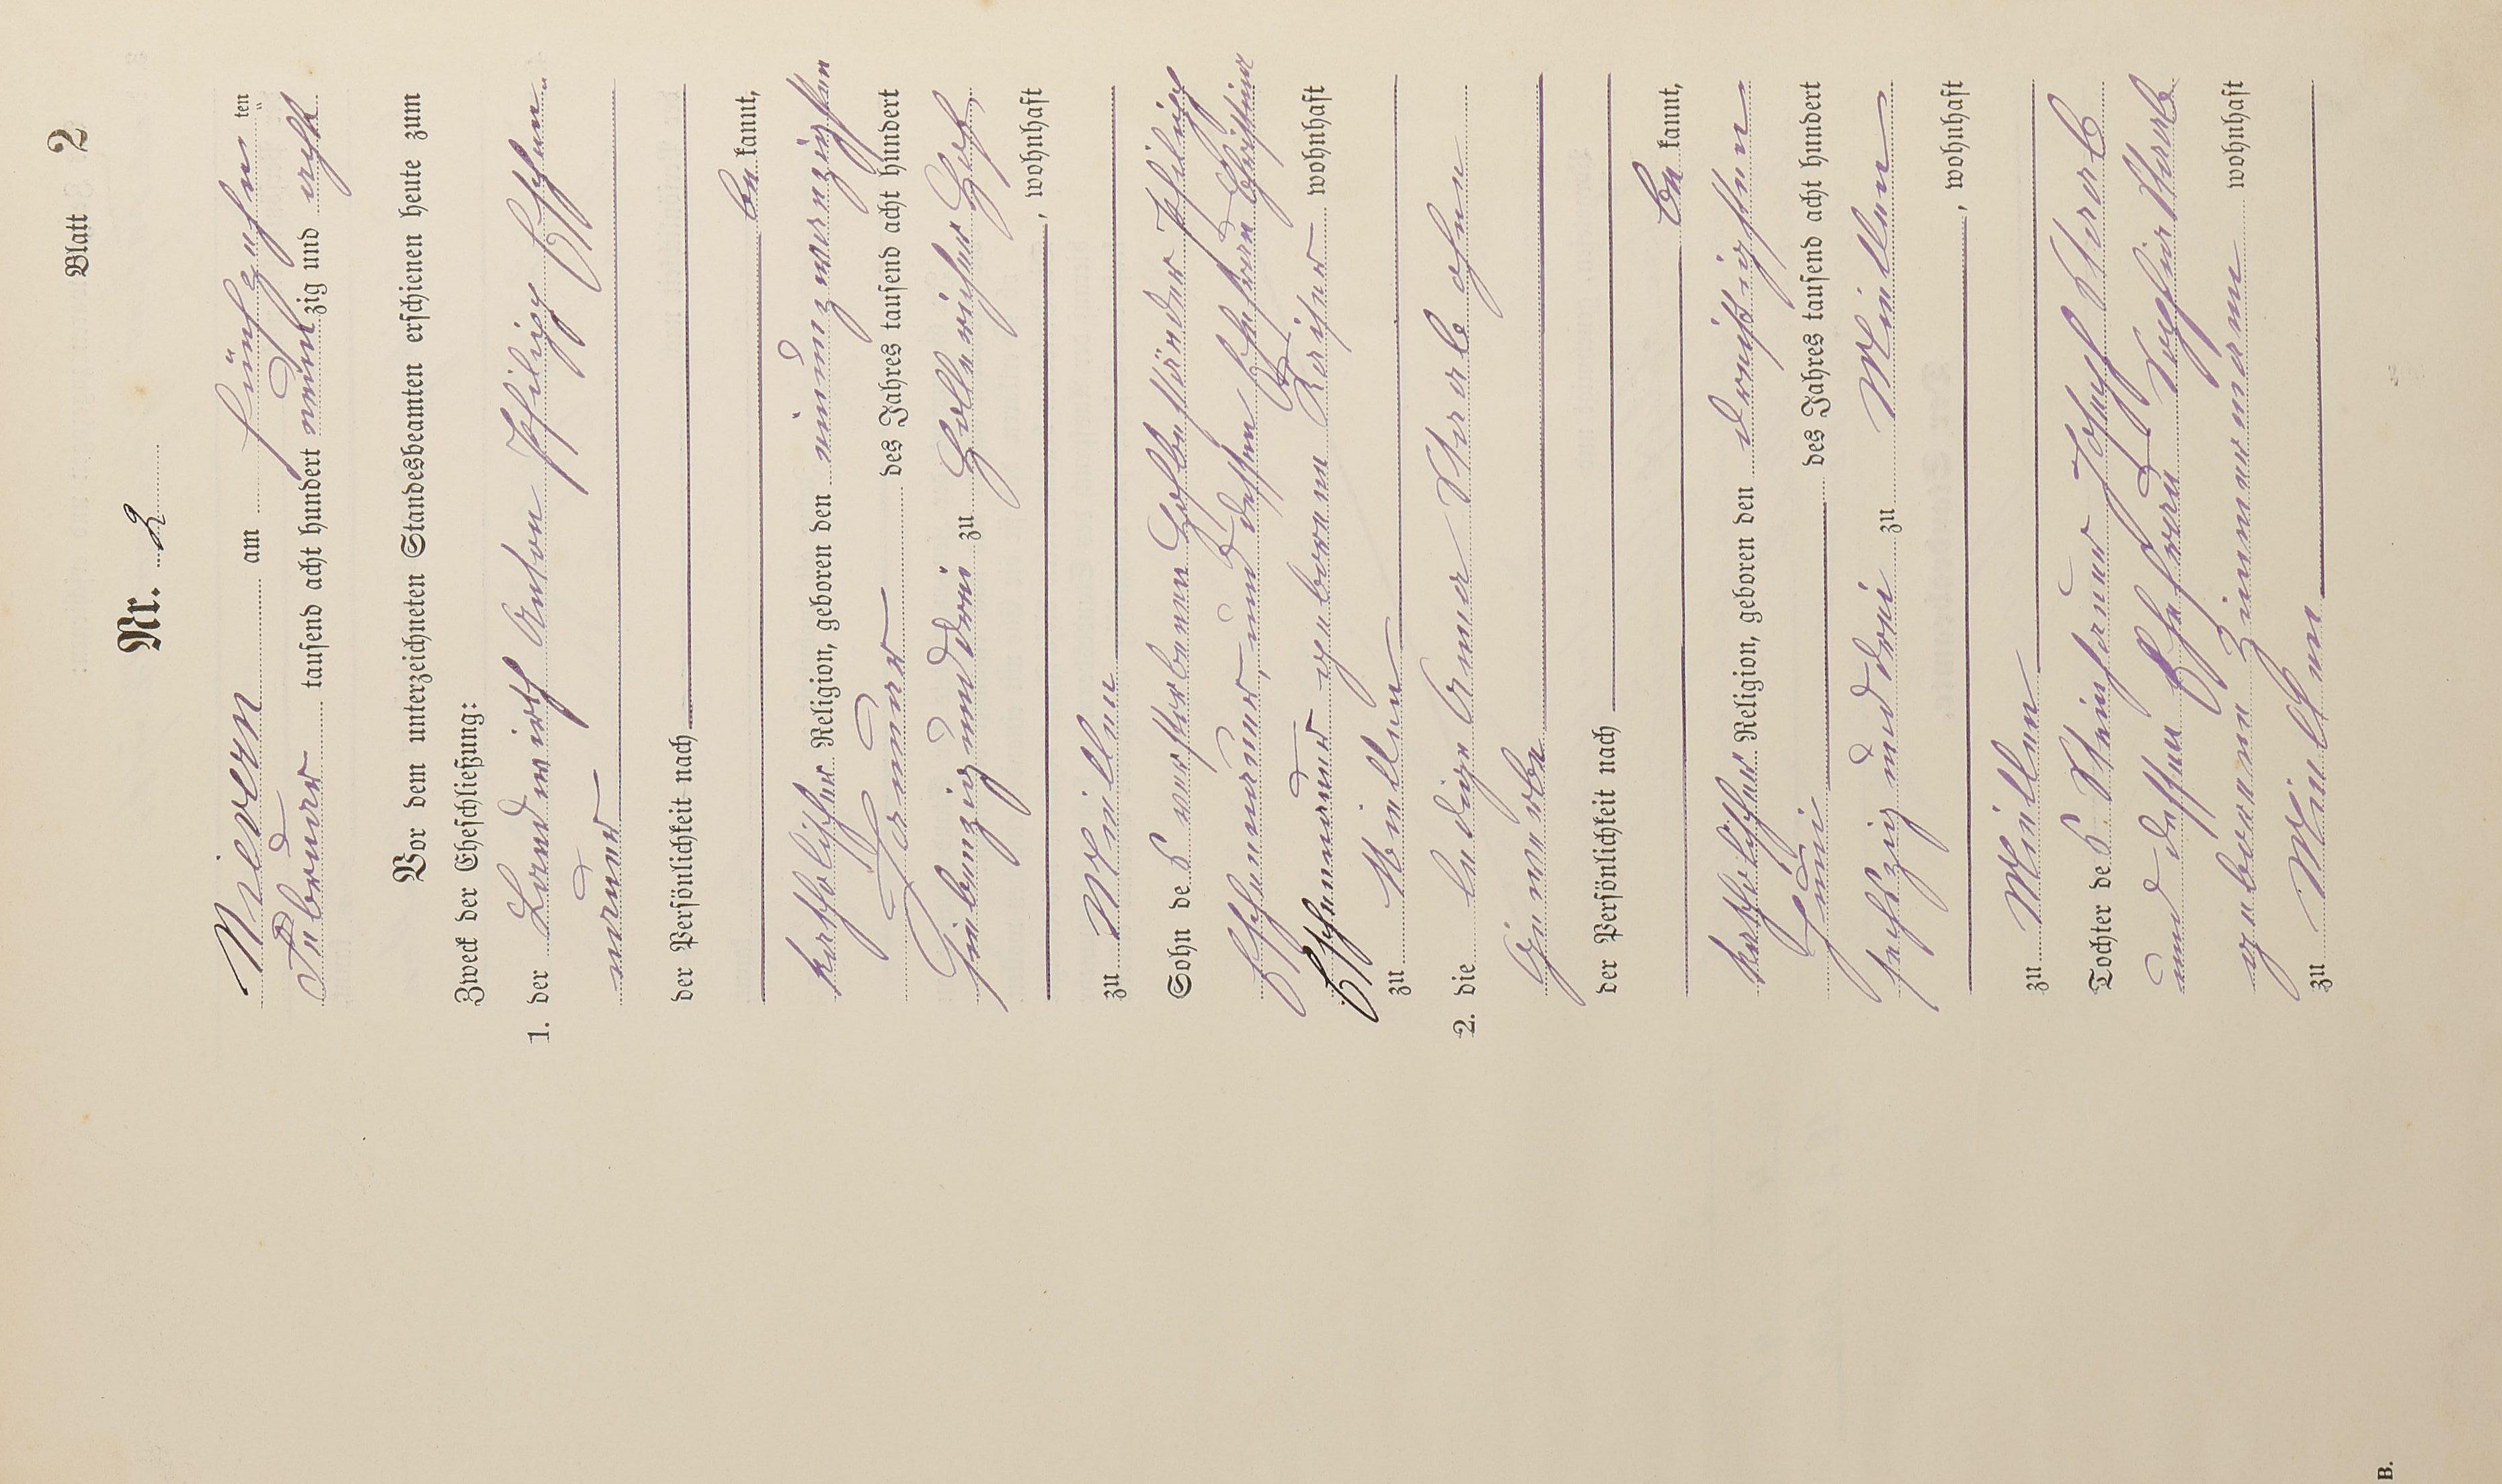 Blatt 2
Nr. 2
Nievern am fünfzehn ten
Februar tausend acht hundert neunzig und acht
Vor dem unterzeichneten Standesbeamten erschienen heute zum
Zweck der Eheschließung:
1. der Landwirth Anton Philipp
der Persönlichkeit nach
be kannt,
katholischer Religion, geboren den neunzehnten
Januar des Jahres tausend acht hundert
siebenzig und drei zu Hof
, wohnhaft
zu Miellen
Sohn des verstorbenen Philipp
und dessen Ehefrau Christine
geborene wohnhaft
zu Miellen
2. die ledige Anna Staab ohne
Gewerbe
der Persönlichkeit nach
be kannt,
katholischer Religion, geboren den dreißigsten
Juni des Jahres tausend acht hundert
sechszig und drei zu Miellen
, wohnhaft
zu Miellen
Tochter des Steinhauer Joseph Staab
und dessen Ehefrau Sophie Staab
geborene Zimmermann wohnhaft
zu Miellen
B.